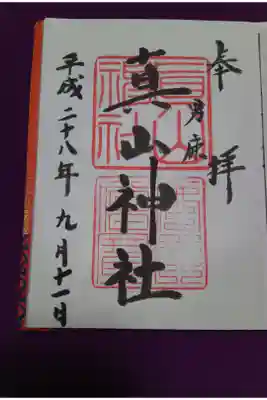 奉拝
男鹿
真山神社
平成二十八年 九月十一日